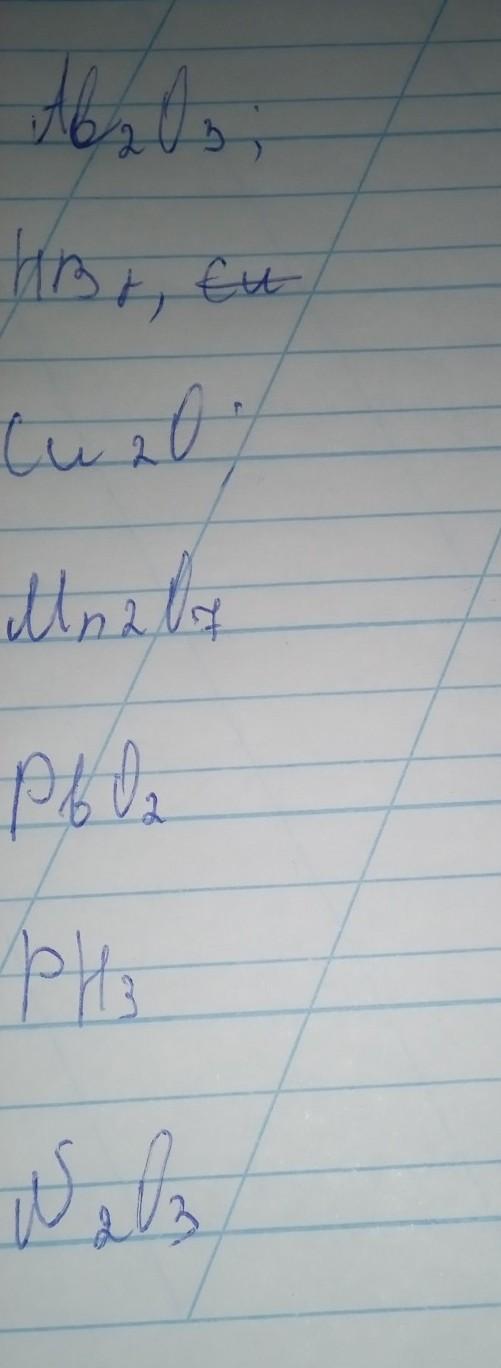 Ab₂O₃;
HBr, ~~Cu~~
Cu₂O
Mn₂O₇
PbO₂
PH₃
N₂O₃